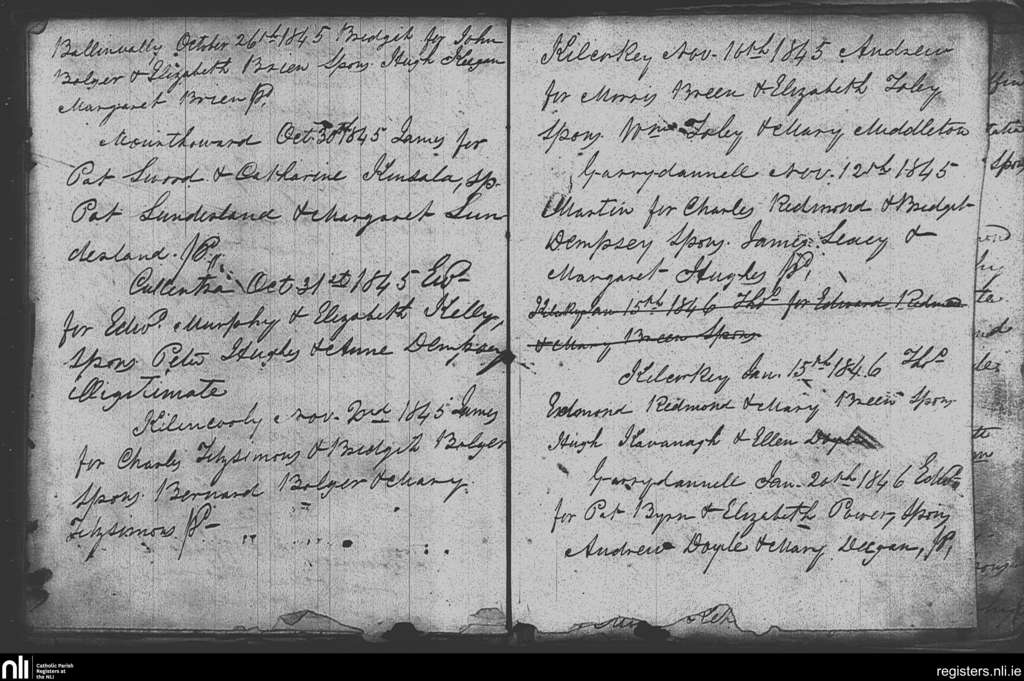 Ballinvally October 26th 1845 Bridgit for John
Bolger & Elizabeth Brien Spons. Hugh Keegan
Margaret Brien P.
Mounthoward Oct 30th 1845 James for
Pat Sword & Catharine Kinsala, sp.
Pat Sunderland & Margaret Sun
derland. P.
Cullentra Oct 31st 1845 Edw
for Edwd. Murphy & Elizabeth Kelly,
Spons Peter Hughes & Anne Dempsey
Illigitimate
Nov. 2nd 1845 James
for Charles Fitzsimons & Bridgit Bolger
Spons. Bernard Bolger & Mary
Fitzsimons P.
Kilcorkey Nov. 10th 1845 Andrew
for Morris Breen & Elizabeth Foley
Spons. Wm Foley & Mary Middleton
Garrydannell Nov. 12th 1845
Martin for Charles Redmond & Bridget
Dempsey Spons. James Leacy &
Margaret Hughes P.
Jan 15th 1846 Thos. for Edward Redmo
& Mary Breen Spons
Kilcorkey Jan. 15th 1846 Thos
Edmond Redmond & Mary Breen Spons
Hugh Kavanagh & Ellen Doyle
Garrydannell Jan. 20th 1846 Edwd
for Pat Byrn & Elizabeth Power, Spons
Andrew Doyle & Mary Deegan, P.
nli Catholic Parish
Registers at
the NLI
registers.nli.ie